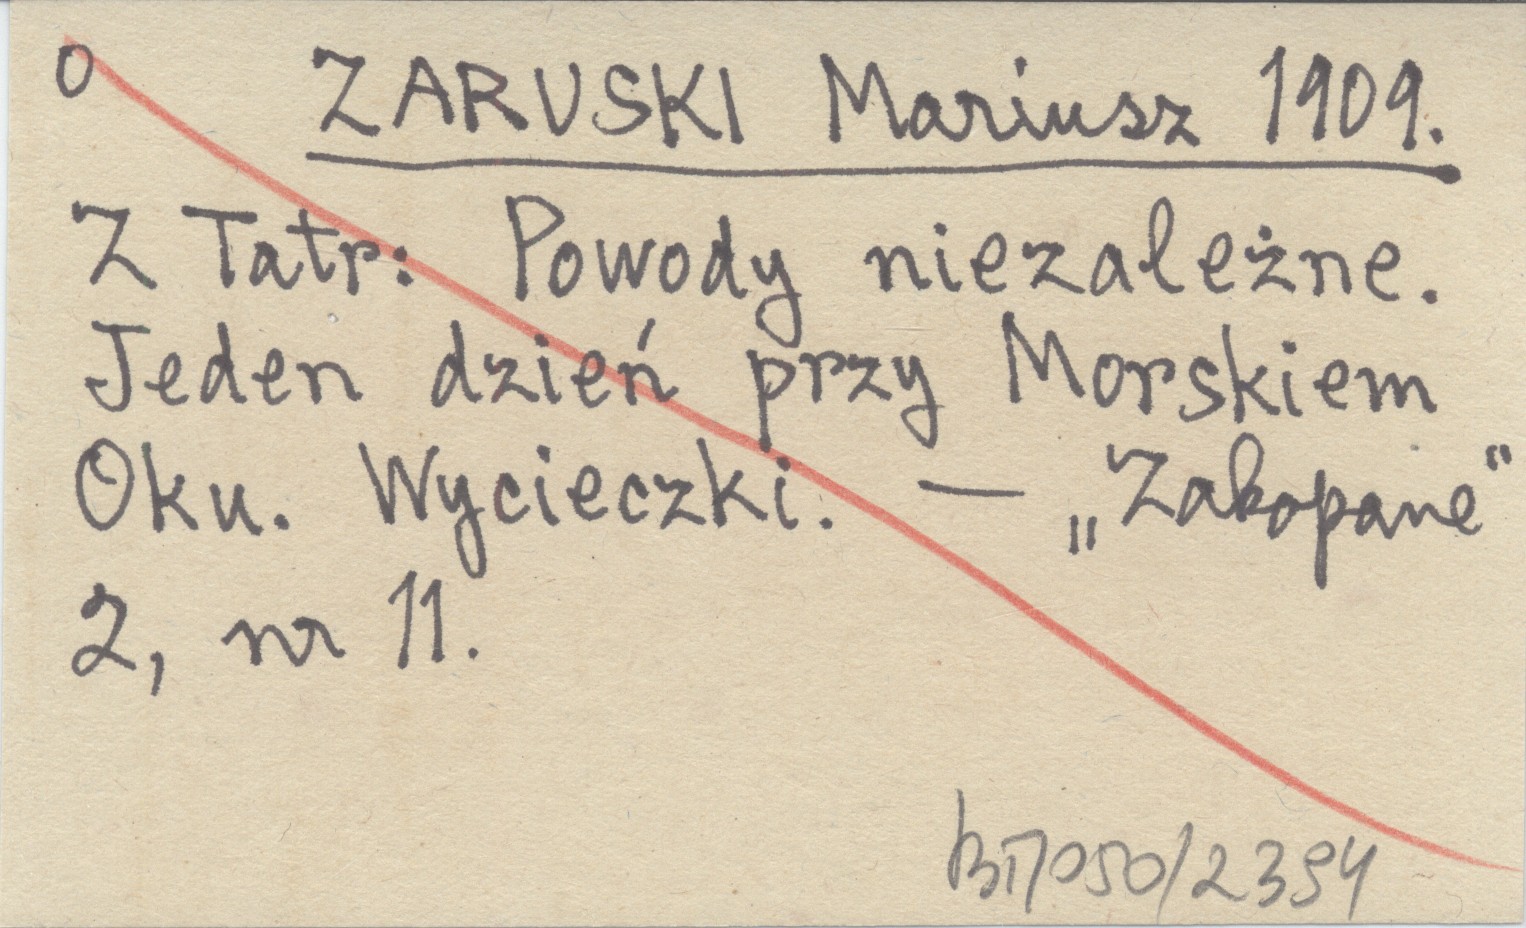 O ZARUSKI Mariusz 1909.
Z Tatr: Powody niezależne.
Jeden dzień przy Morskiem
Oku. Wycieczki. — „Zakopane“
2, nr 11.
/2394